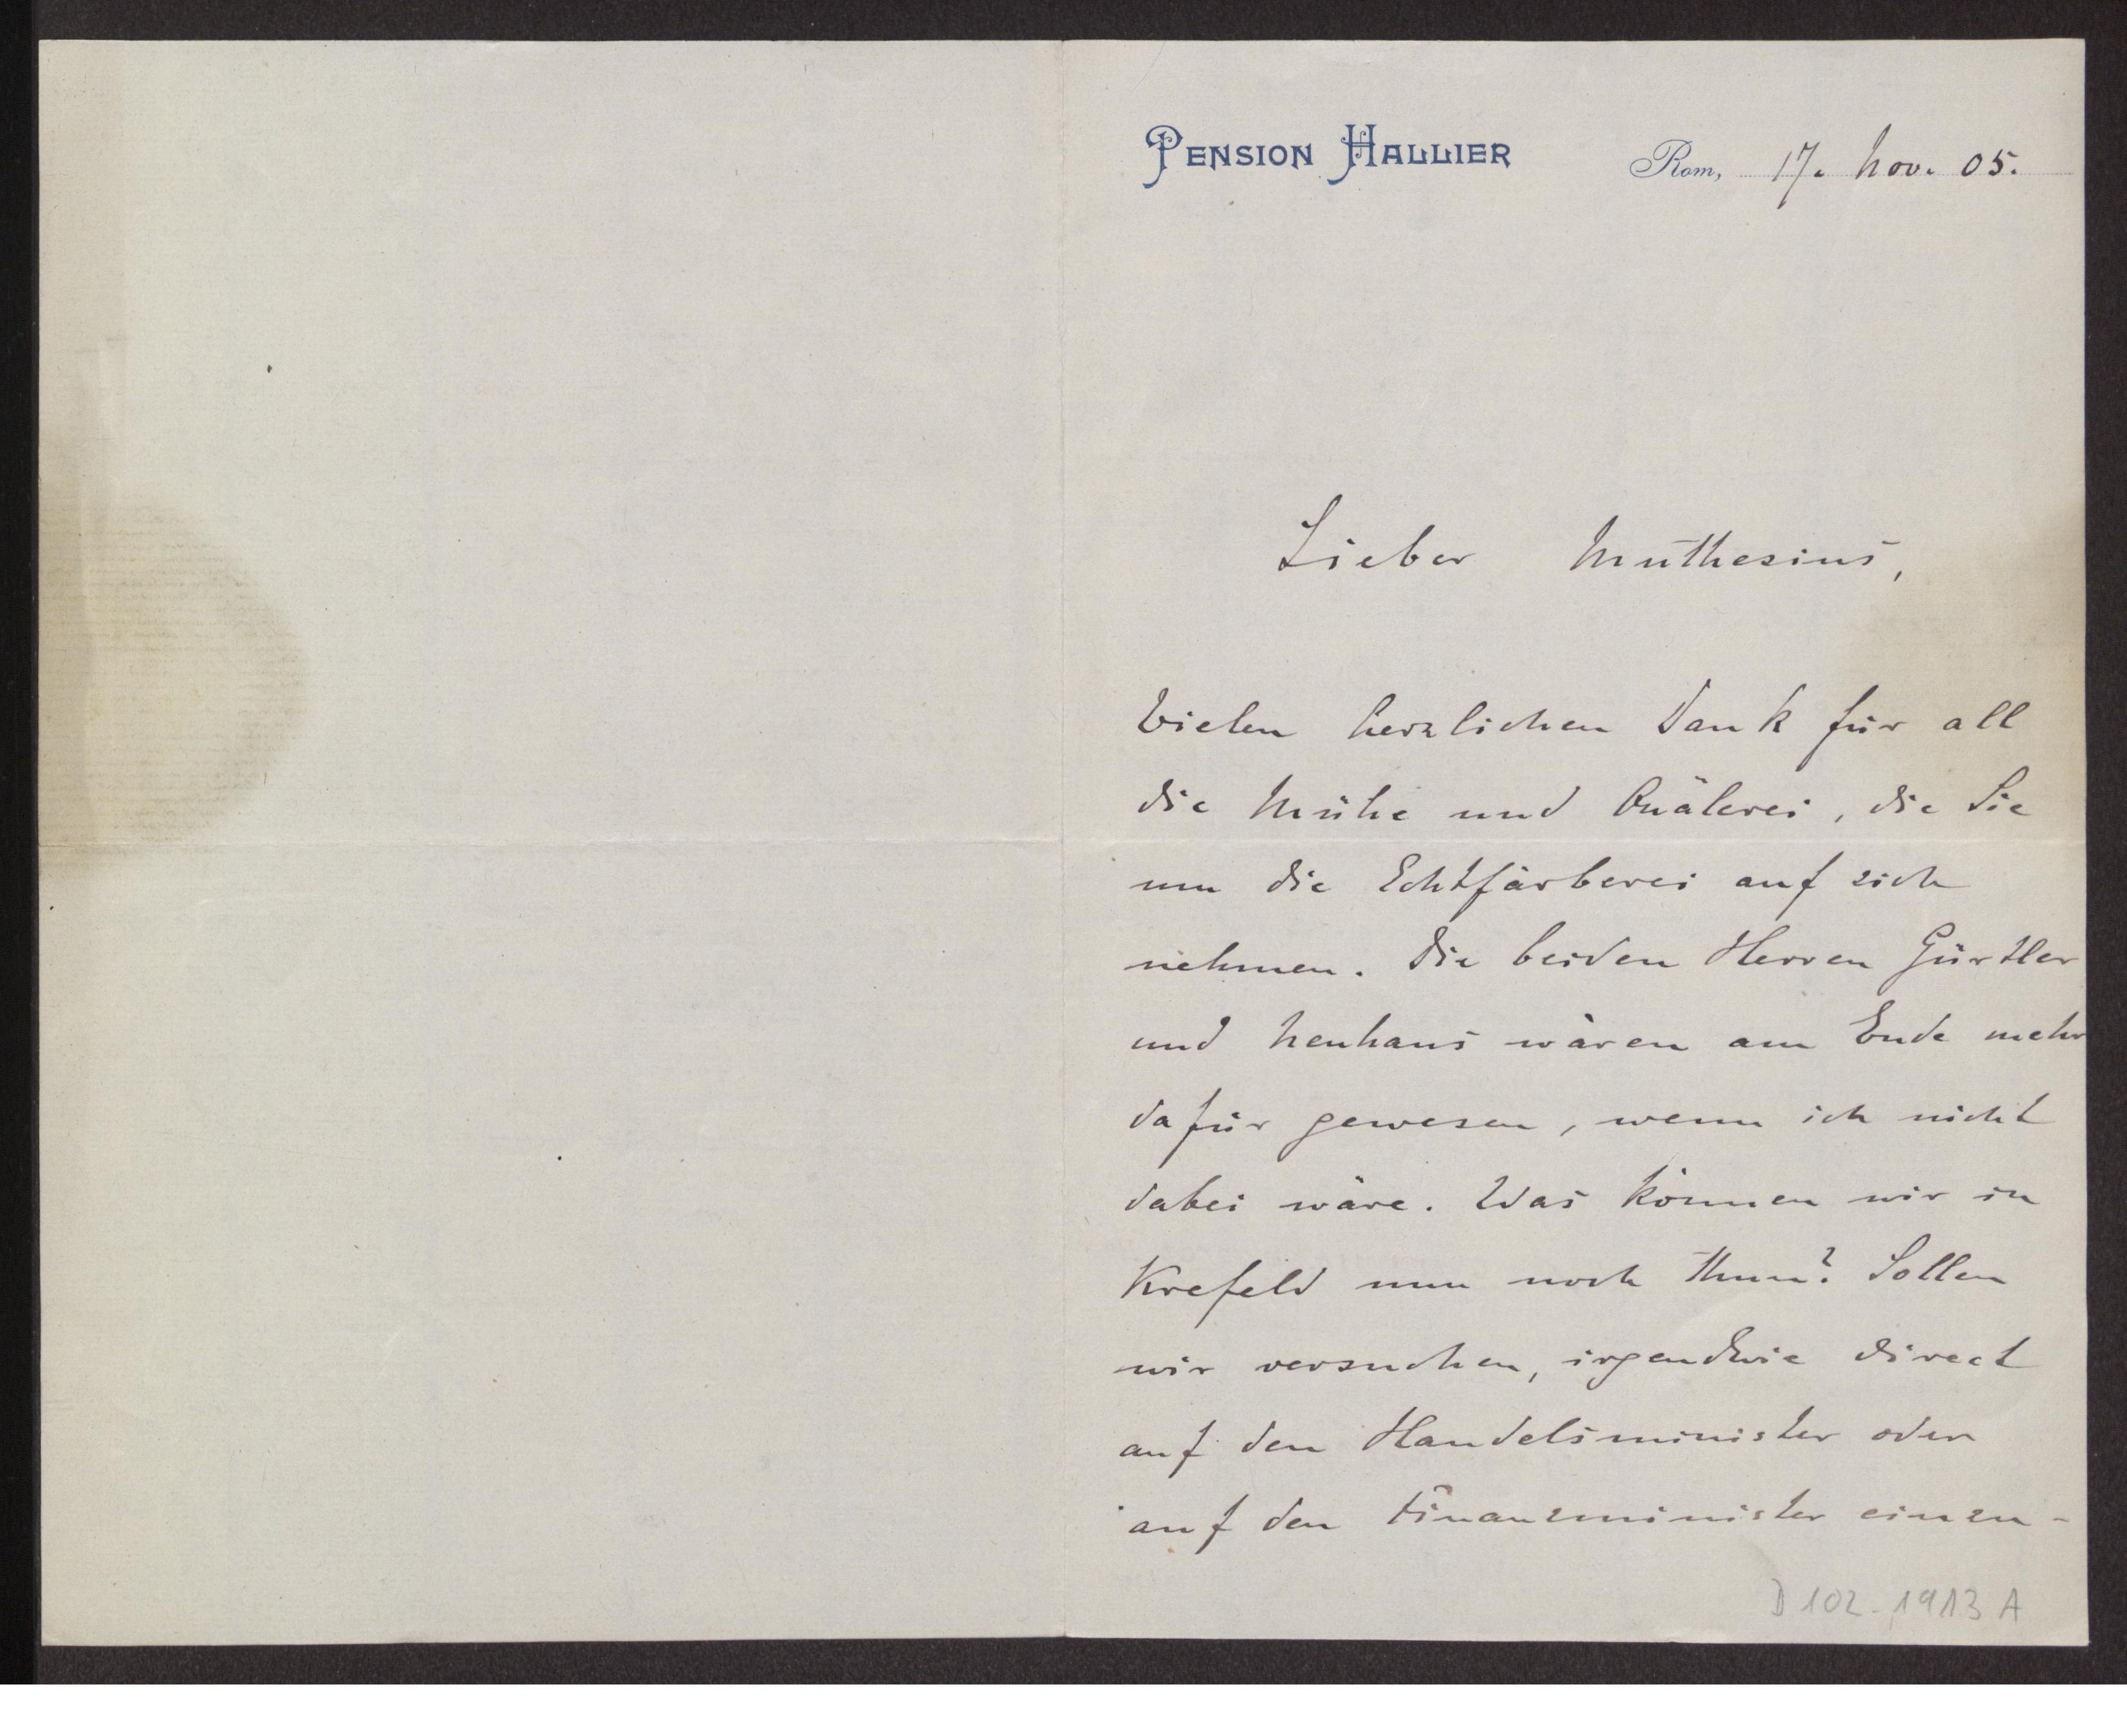 PENSION HALLIER
Rom, 17. Nov. 05.
Lieber Muthesius,
Vielen herzlichen Dank für all
die Mühe und Quälerei, die Sie
um die Echtfärberei auf sich
nehmen. Die beiden Herren Gürtler
und Neuhaus wären am Ende mehr
dafür gewesen, wenn ich nicht
dabei wäre. Was können wir in
Krefeld nun noch thun? Sollen
wir versuchen, irgendwie direct
auf den Handelsminister oder
auf den Finanzminister einzu-
D 102-1913 A